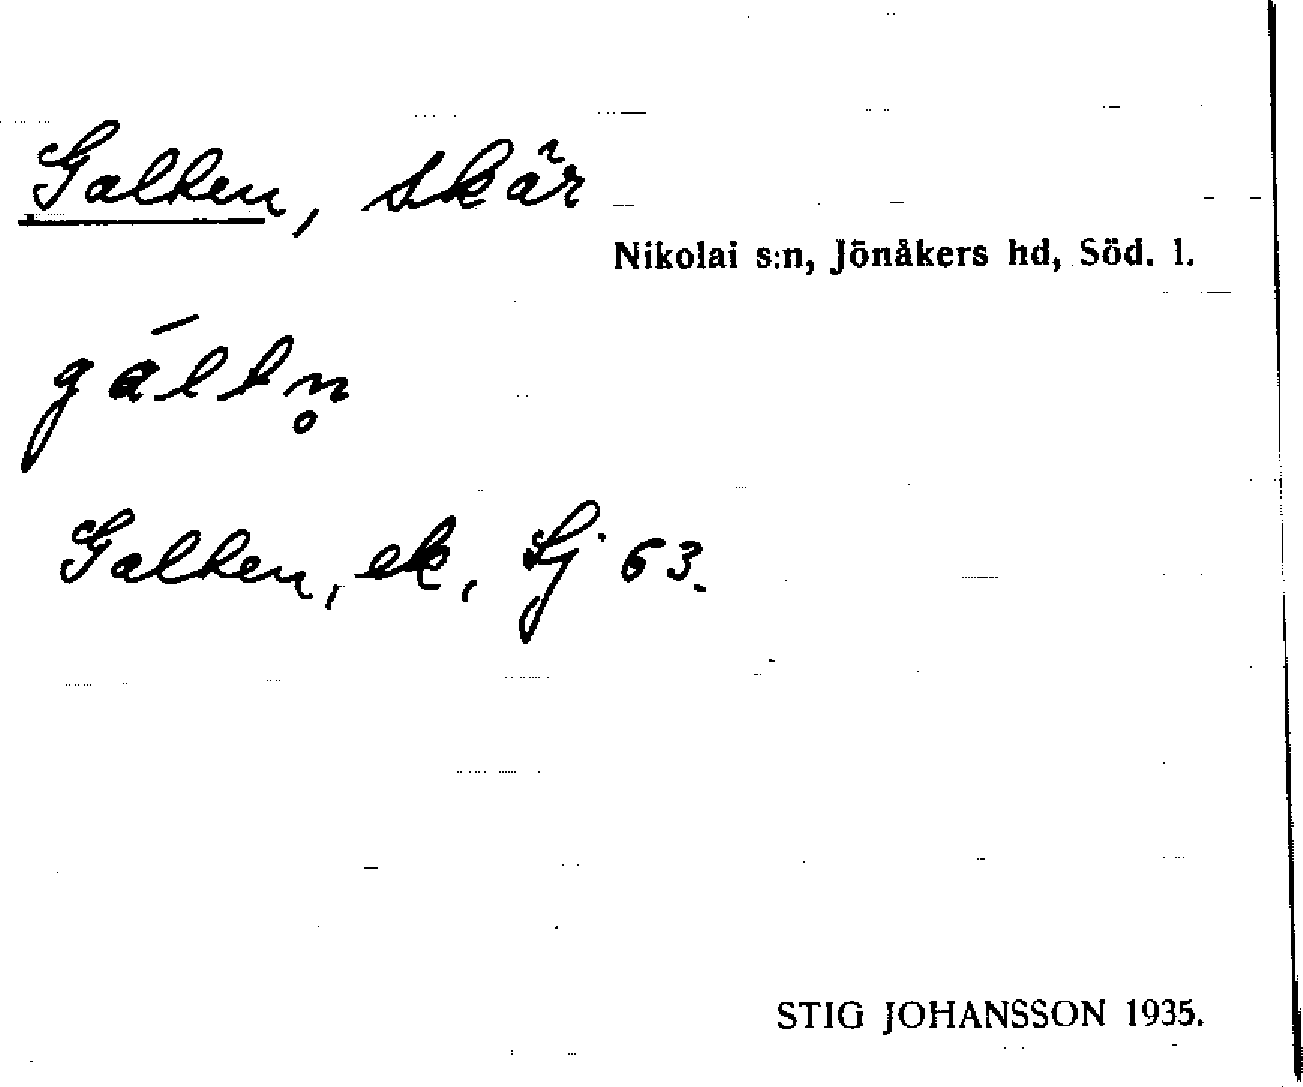 Galten, skär
Nikolai s:n, Jönåkers hd, Söd. l.
gáltn̥
Galten, ek, Sj 63.
STIG JOHANSSON 1935.